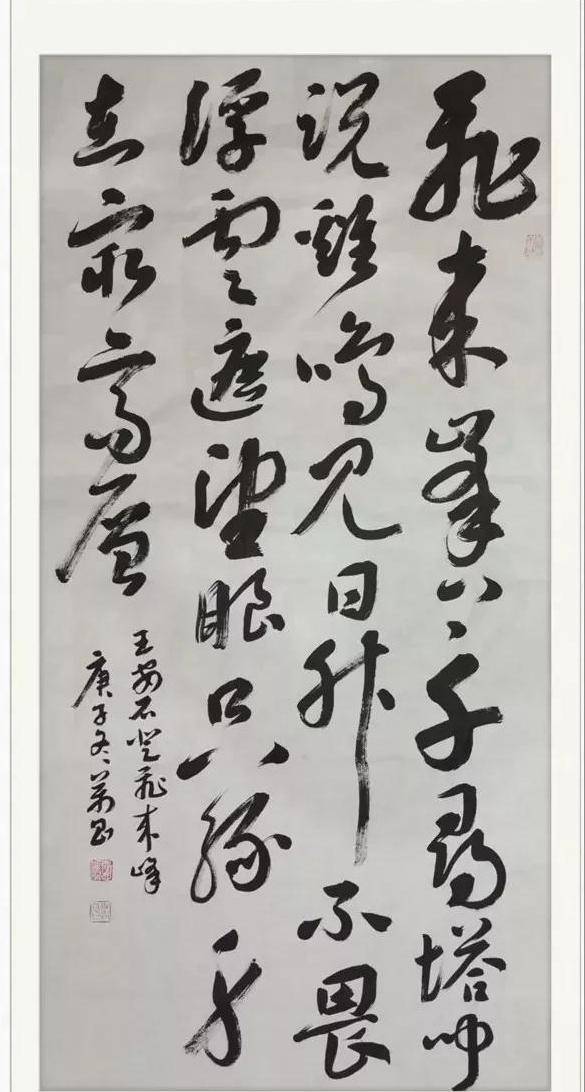 飛来峯上千尋塔聞
説雞鳴見日升不畏
浮雲遮望眼只緣身
在最高層
王安石登飛来峰
庚子冬